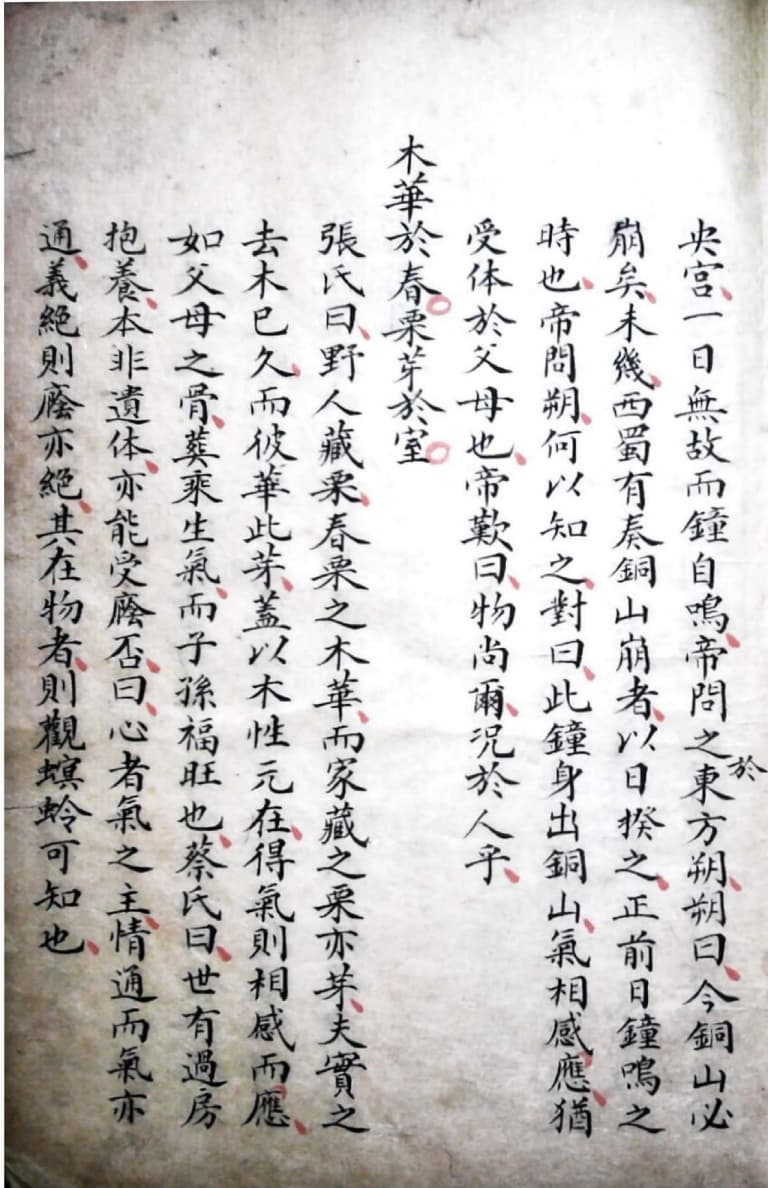 央宮一日無故而鐘自鳴帝問之東方朔朔曰今銅山必
於
崩矣未幾西蜀有奏銅山崩者以日揆之正前日鐘鳴之
時也帝問朔何以知之對曰此鐘身出銅山氣相感應猶
受体於父母也帝歎曰物尚爾況於人乎
木華於春栗芽於室
張氏曰野人藏栗春栗之木華而家藏之栗亦芽夫實之
去木已久而彼華此芽蓋以木性元在得氣則相感而應
如父母之骨葬乘生氣而子孫福旺也蔡氏曰世有過房
抱養本非遺体亦能受廕否曰心者氣之主情通而氣亦
通義絕則廕亦絕其在物者則觀螟蛉可知也